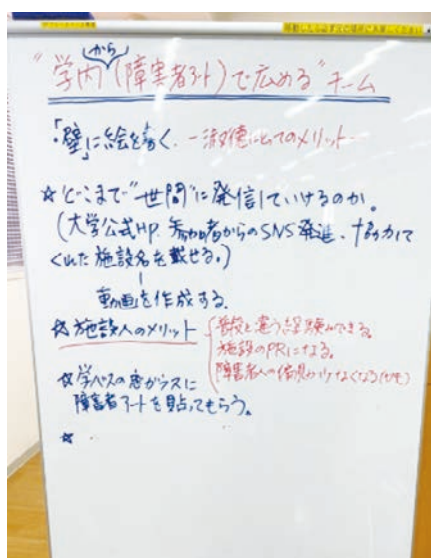 から
"学内(障害者アート)で広める"チーム
・「壁」に絵を書く。ー淑徳にとってのメリットー
☆どこまで"世間"に発信していけるのか。
(大学公式HP、参加者からのSNS発進、協力して
くれた施設名を載せる。)
動画を作成する。
☆施設へのメリット
普段と違う経験ができる。
施設のPRになる。
障害者への偏見がなくなる(かも)
☆学バスの窓ガラスに
障害者アートを貼ってもらう。
☆ ・